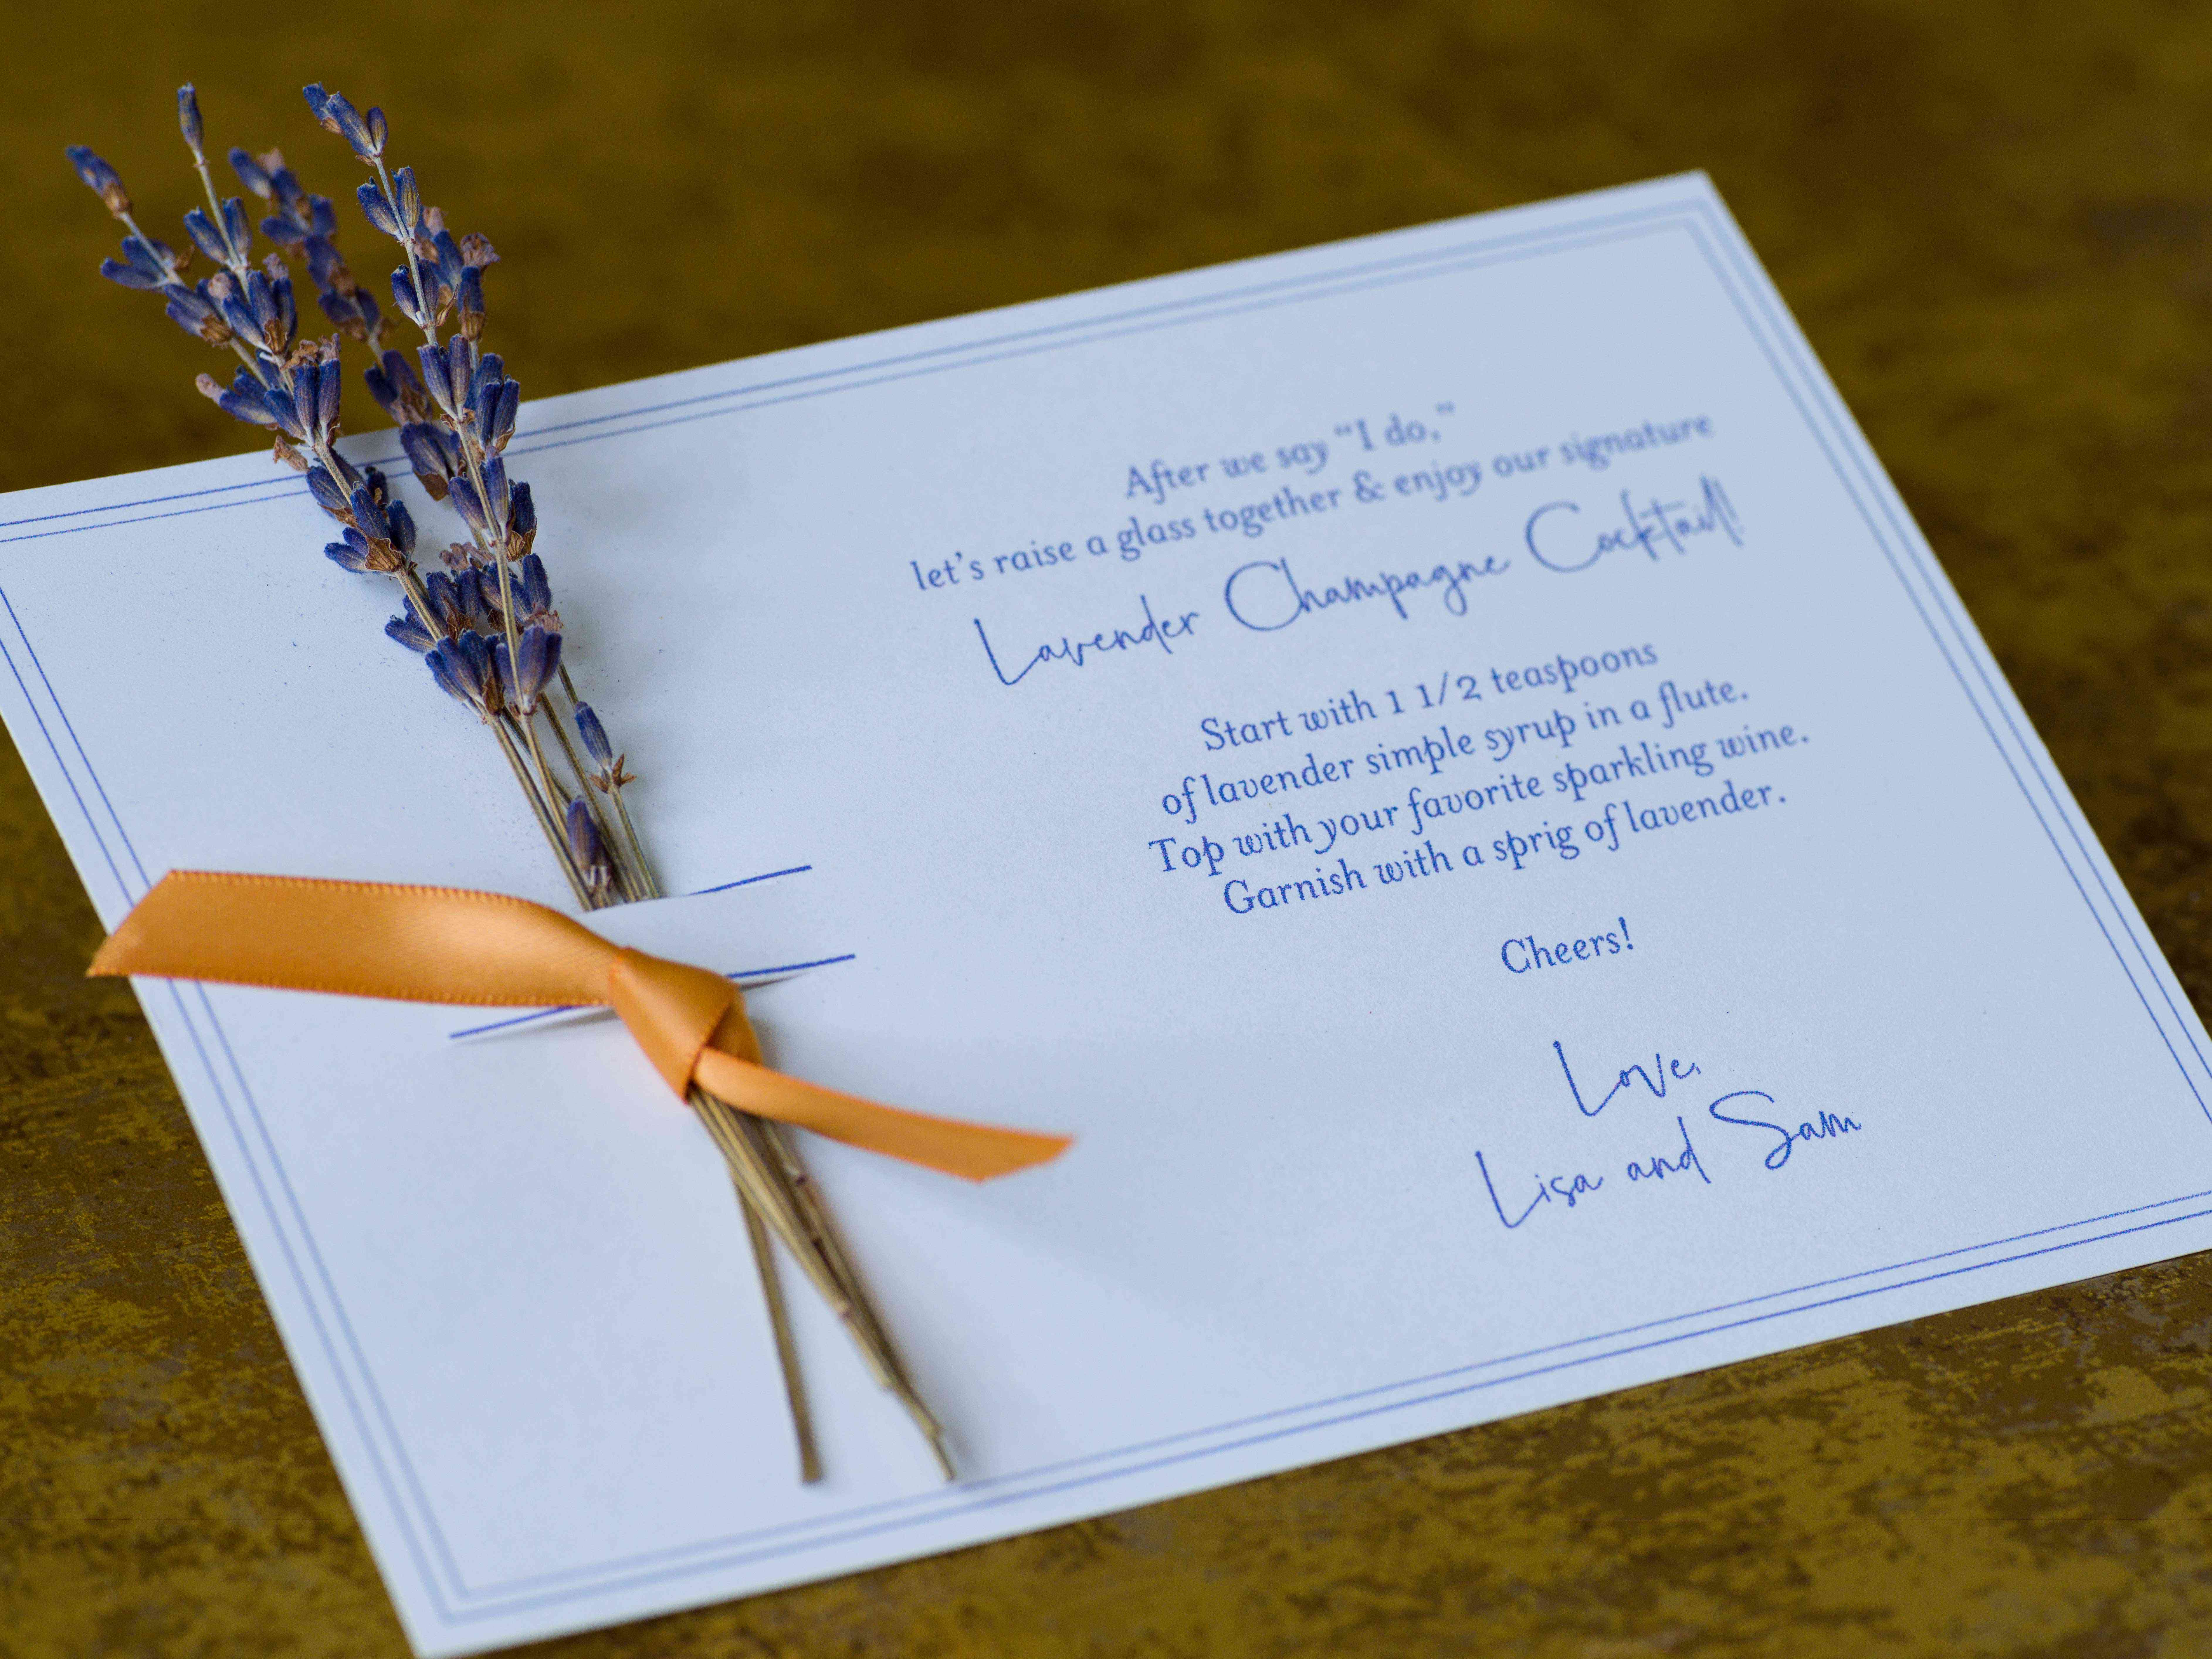 After we say “I do,”
let’s raise a glass together & enjoy our signature
Lavender Champagne Cocktail!
Start with 1 1/2 teaspoons
of lavender simple syrup in a flute.
Top with your favorite sparkling wine.
Garnish with a sprig of lavender.
Cheers!
Love,
Lisa and Sam